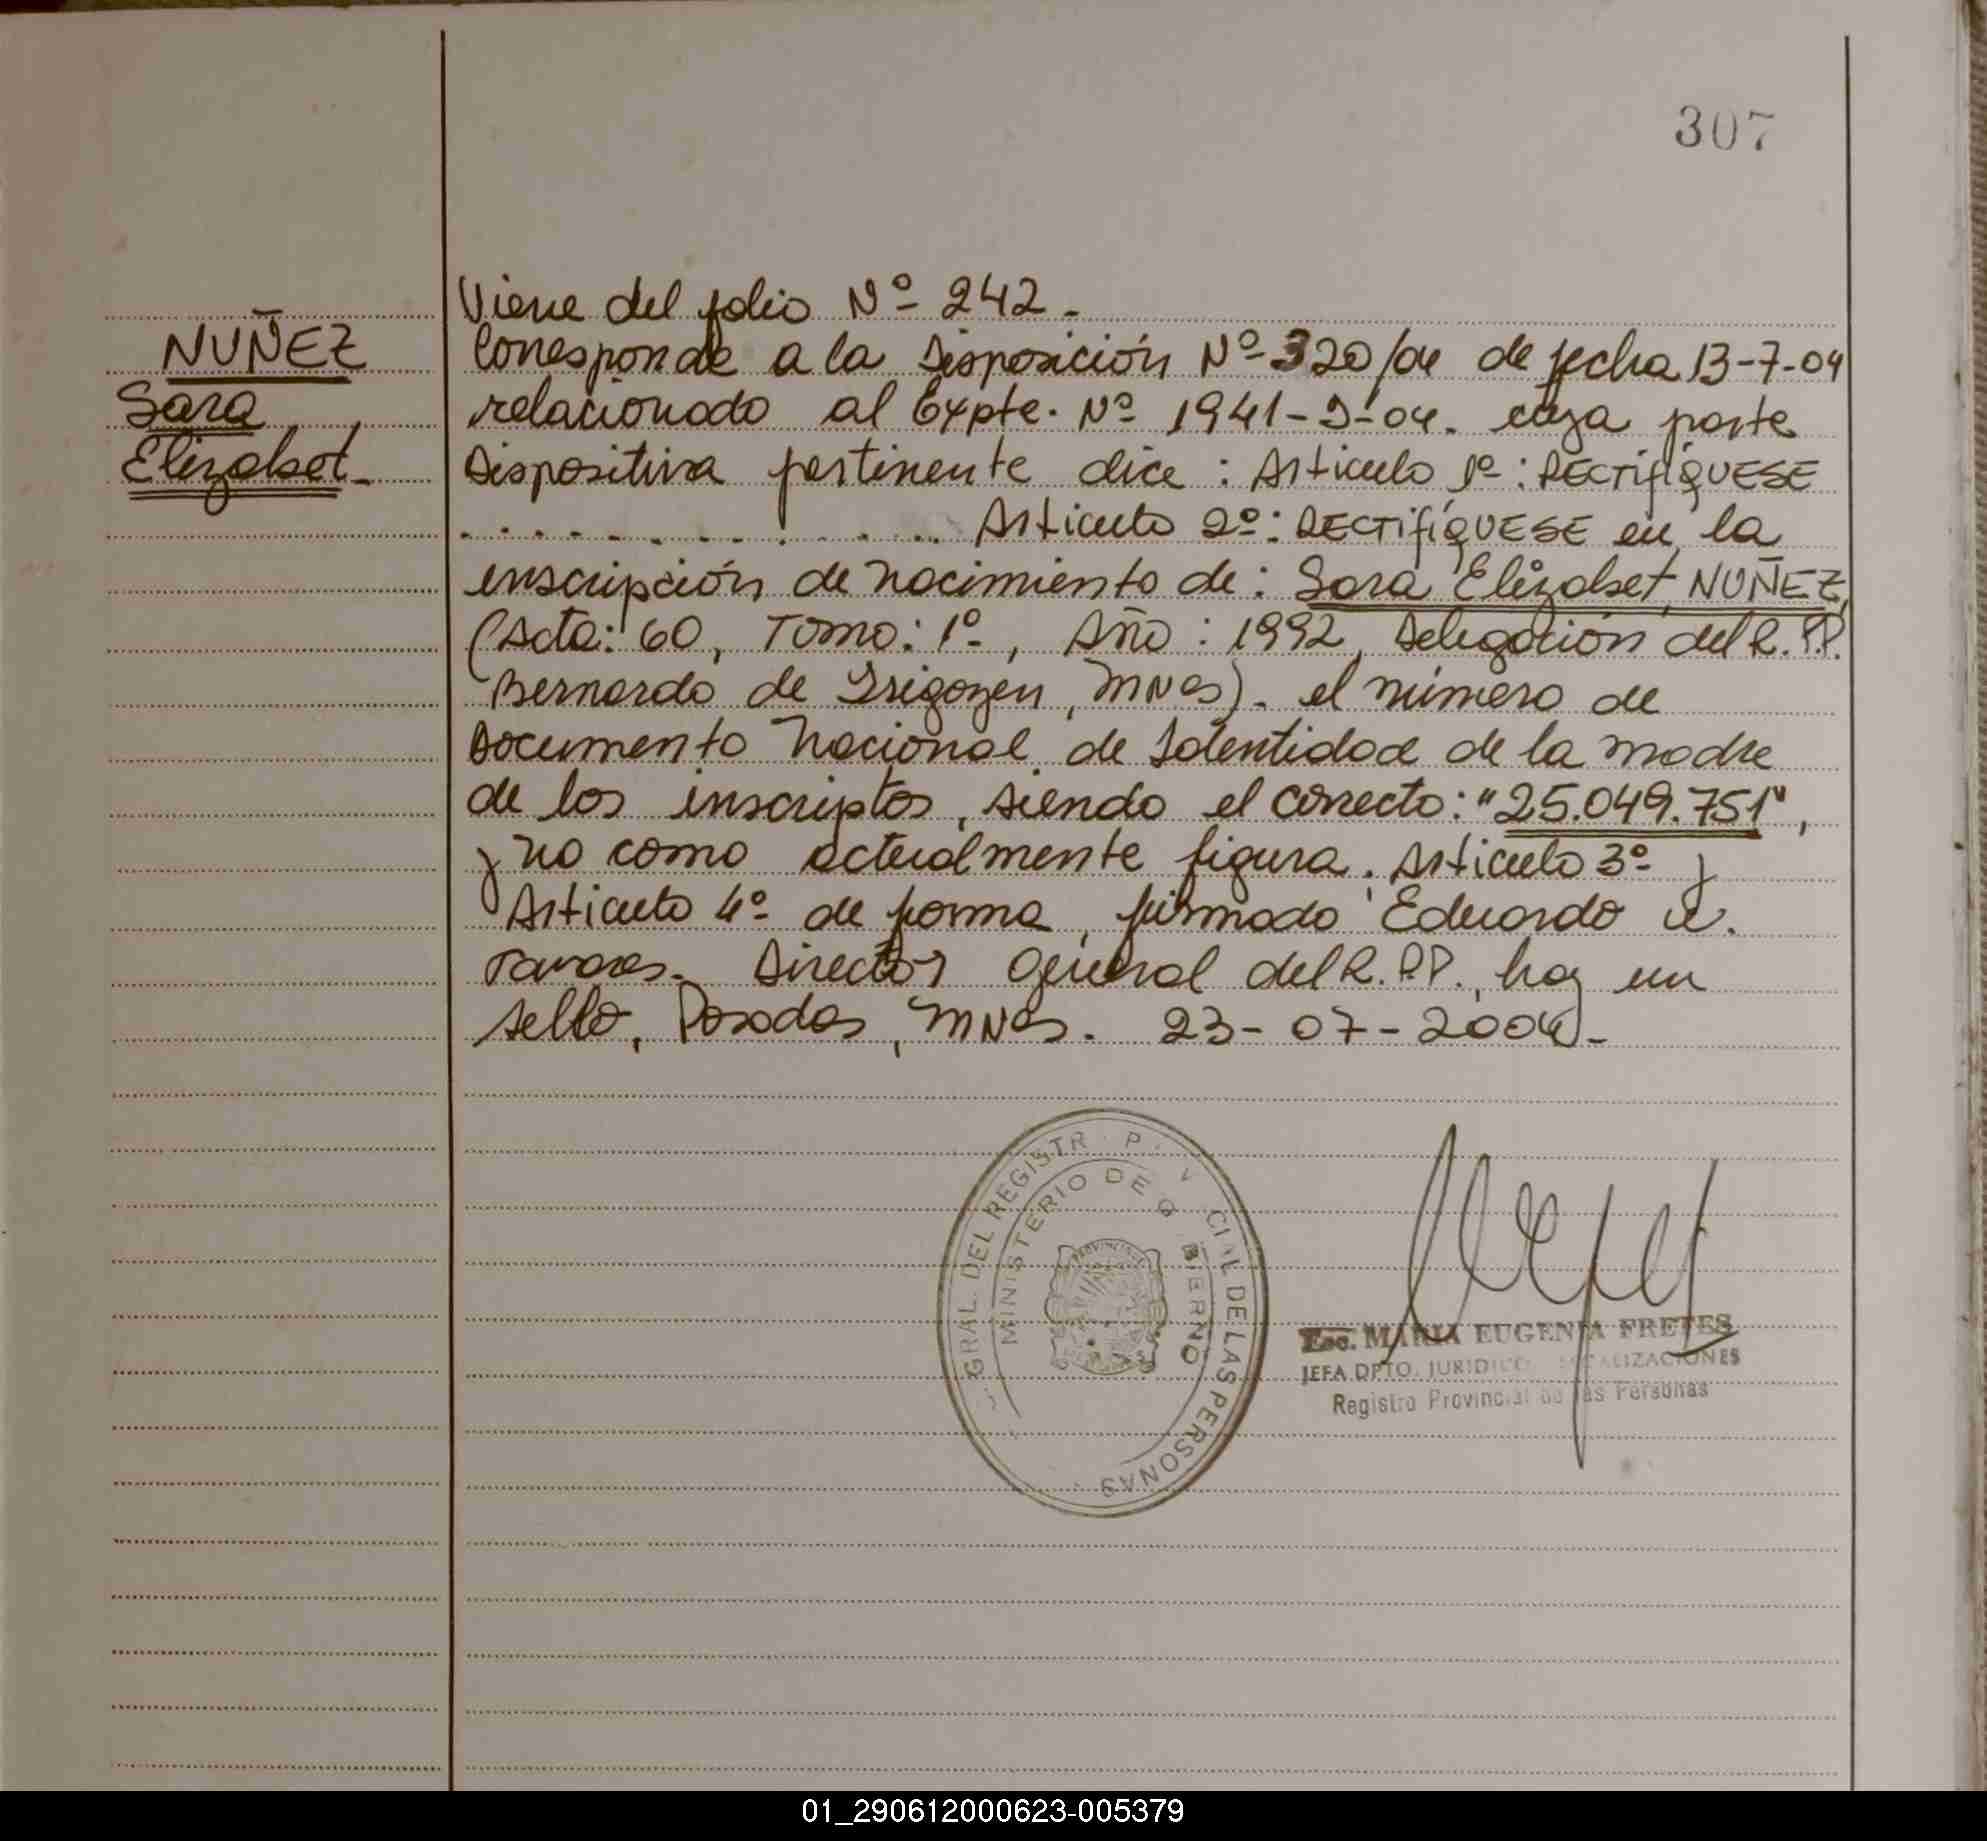 307
Viene del folio Nº 242.
NUÑEZ
Corresponde a la Disposición Nº 320/04 de fecha 13-7-04
Sara
relacionado al Expte. Nº 1941-J-04. cuya parte
Elizabet.
Dispositiva pertinente dice: Artículo 1º: RECTIFÍQUESE
.............. Artículo 2º: RECTIFÍQUESE en la
inscripción de nacimiento de: Sara Elizabet NUÑEZ,
(Acta: 60, Tomo: 1º, Año: 1992, Delegación del R.P.P.
Bernardo de Irigoyen, Mnes). el número de
Documento Nacional de Identidad de la madre
de los inscriptos, siendo el correcto: "25.049.751",
y no como actualmente figura. Artículo 3º y
Artículo 4º de forma, firmado Eduardo
Director General del R.P.P., hay un
sello, Posadas, Mnes. 23-07-2004.-
GRAL. DEL REGISTR P V CIAL DE LAS PERSONAS
MINISTERIO DE G BIERNO
Esc. MARIA EUGENIA FRETES
JEFA DPTO. JURIDICO ALIZACIONES
Registro Provincial de las Personas
01_290612000623-005379